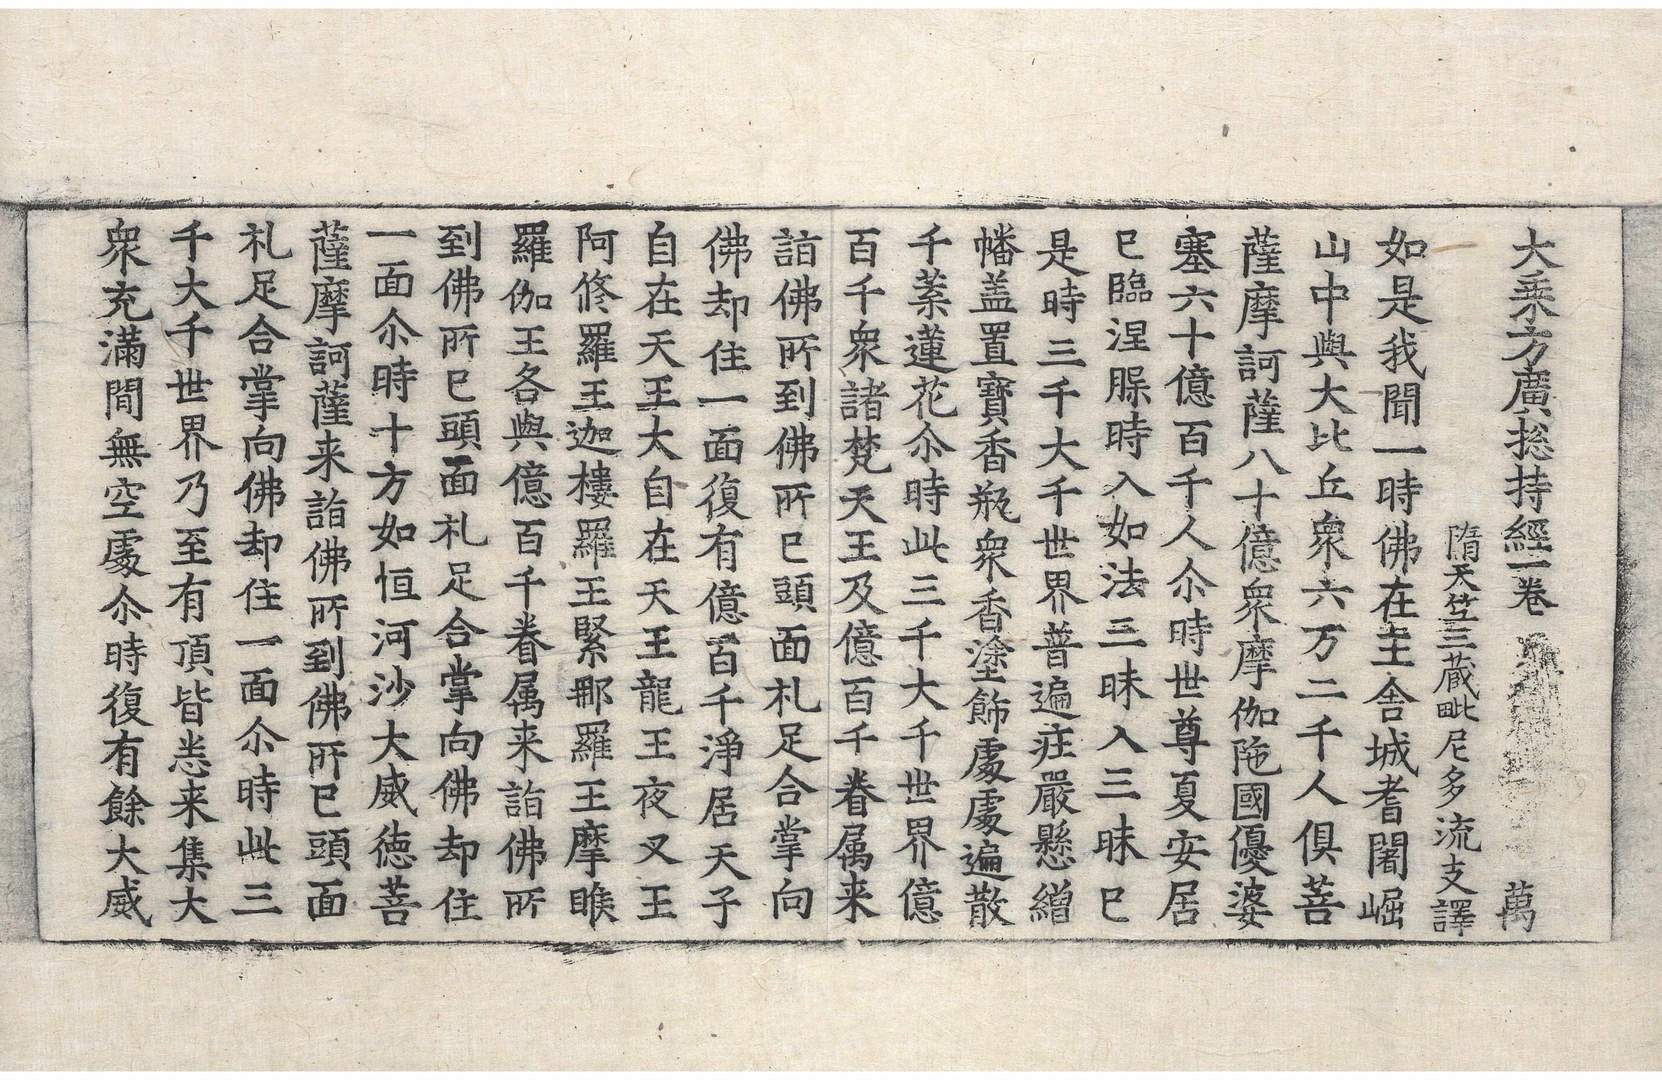 大乘方廣揔持經一卷 萬
隋天竺三藏毗尼多流支譯
如是我聞一時佛在王舍城耆闍崛
山中與大比丘衆六万二千人俱菩
薩摩訶薩八十億衆摩伽陁國優婆
塞六十億百千人尒時世尊夏安居
已臨涅脲時入如法三昧入三昧已
是時三千大千世界普遍庄嚴懸繒
幡盖置寶香瓶衆香塗飾處處遍散
千葉蓮花尒時此三千大千世界億
百千衆諸梵天王及億百千眷属来
詣佛所到佛所已頭面礼足合掌向
佛却住一面復有億百千淨居天子
自在天王大自在天王龍王夜叉王
阿修羅王迦樓羅王緊那羅王摩睺
羅伽王各與億百千眷属来詣佛所
到佛所已頭面礼足合掌向佛却住
一面尒時十方如恒河沙大威德菩
薩摩訶薩来詣佛所到佛所已頭面
礼足合掌向佛却住一面尒時此三
千大千世界乃至有頂皆悉来集大
衆充滿間無空處尒時復有餘大威